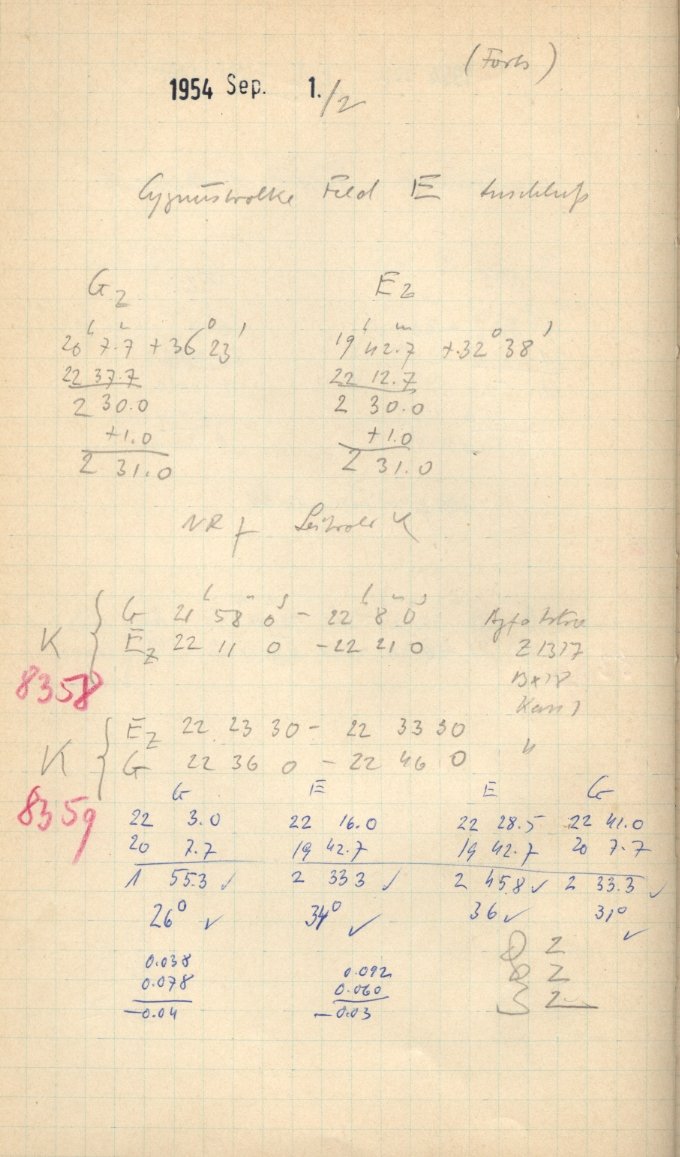 (Forts)
1954 Sep. 1./2
Cygnuswolke Feld E Anschluß
G₂ E₂
20ʰ 7.7ᵐ + 36° 23' 19ʰ 42.7ᵐ + 32° 38'
22 37.7 22 12.7
2 30.0 2 30.0
+1.0 +1.0
2 31.0 2 31.0
K
K { G 21ʰ 58ᵐ 0ˢ – 22ʰ 8ᵐ 0ˢ
E_Z 22 11 0 – 22 21 0 Z 1317
8358
E_Z 22 23 30 – 22 33 30
K { G 22 36 0 – 22 46 0 "
8359
G E E G
22 3.0 22 16.0 22 28.5 22 41.0
20 7.7 19 42.7 19 42.7 20 7.7
1 55.3 ✓ 2 33.3 ✓ 2 45.8 ✓ 2 33.3 ✓
26° ✓ 34° ✓ 36 ✓ 31° ✓
0.038 0.092
0.078 0.060
–0.04 –0.03
2
2
3 2